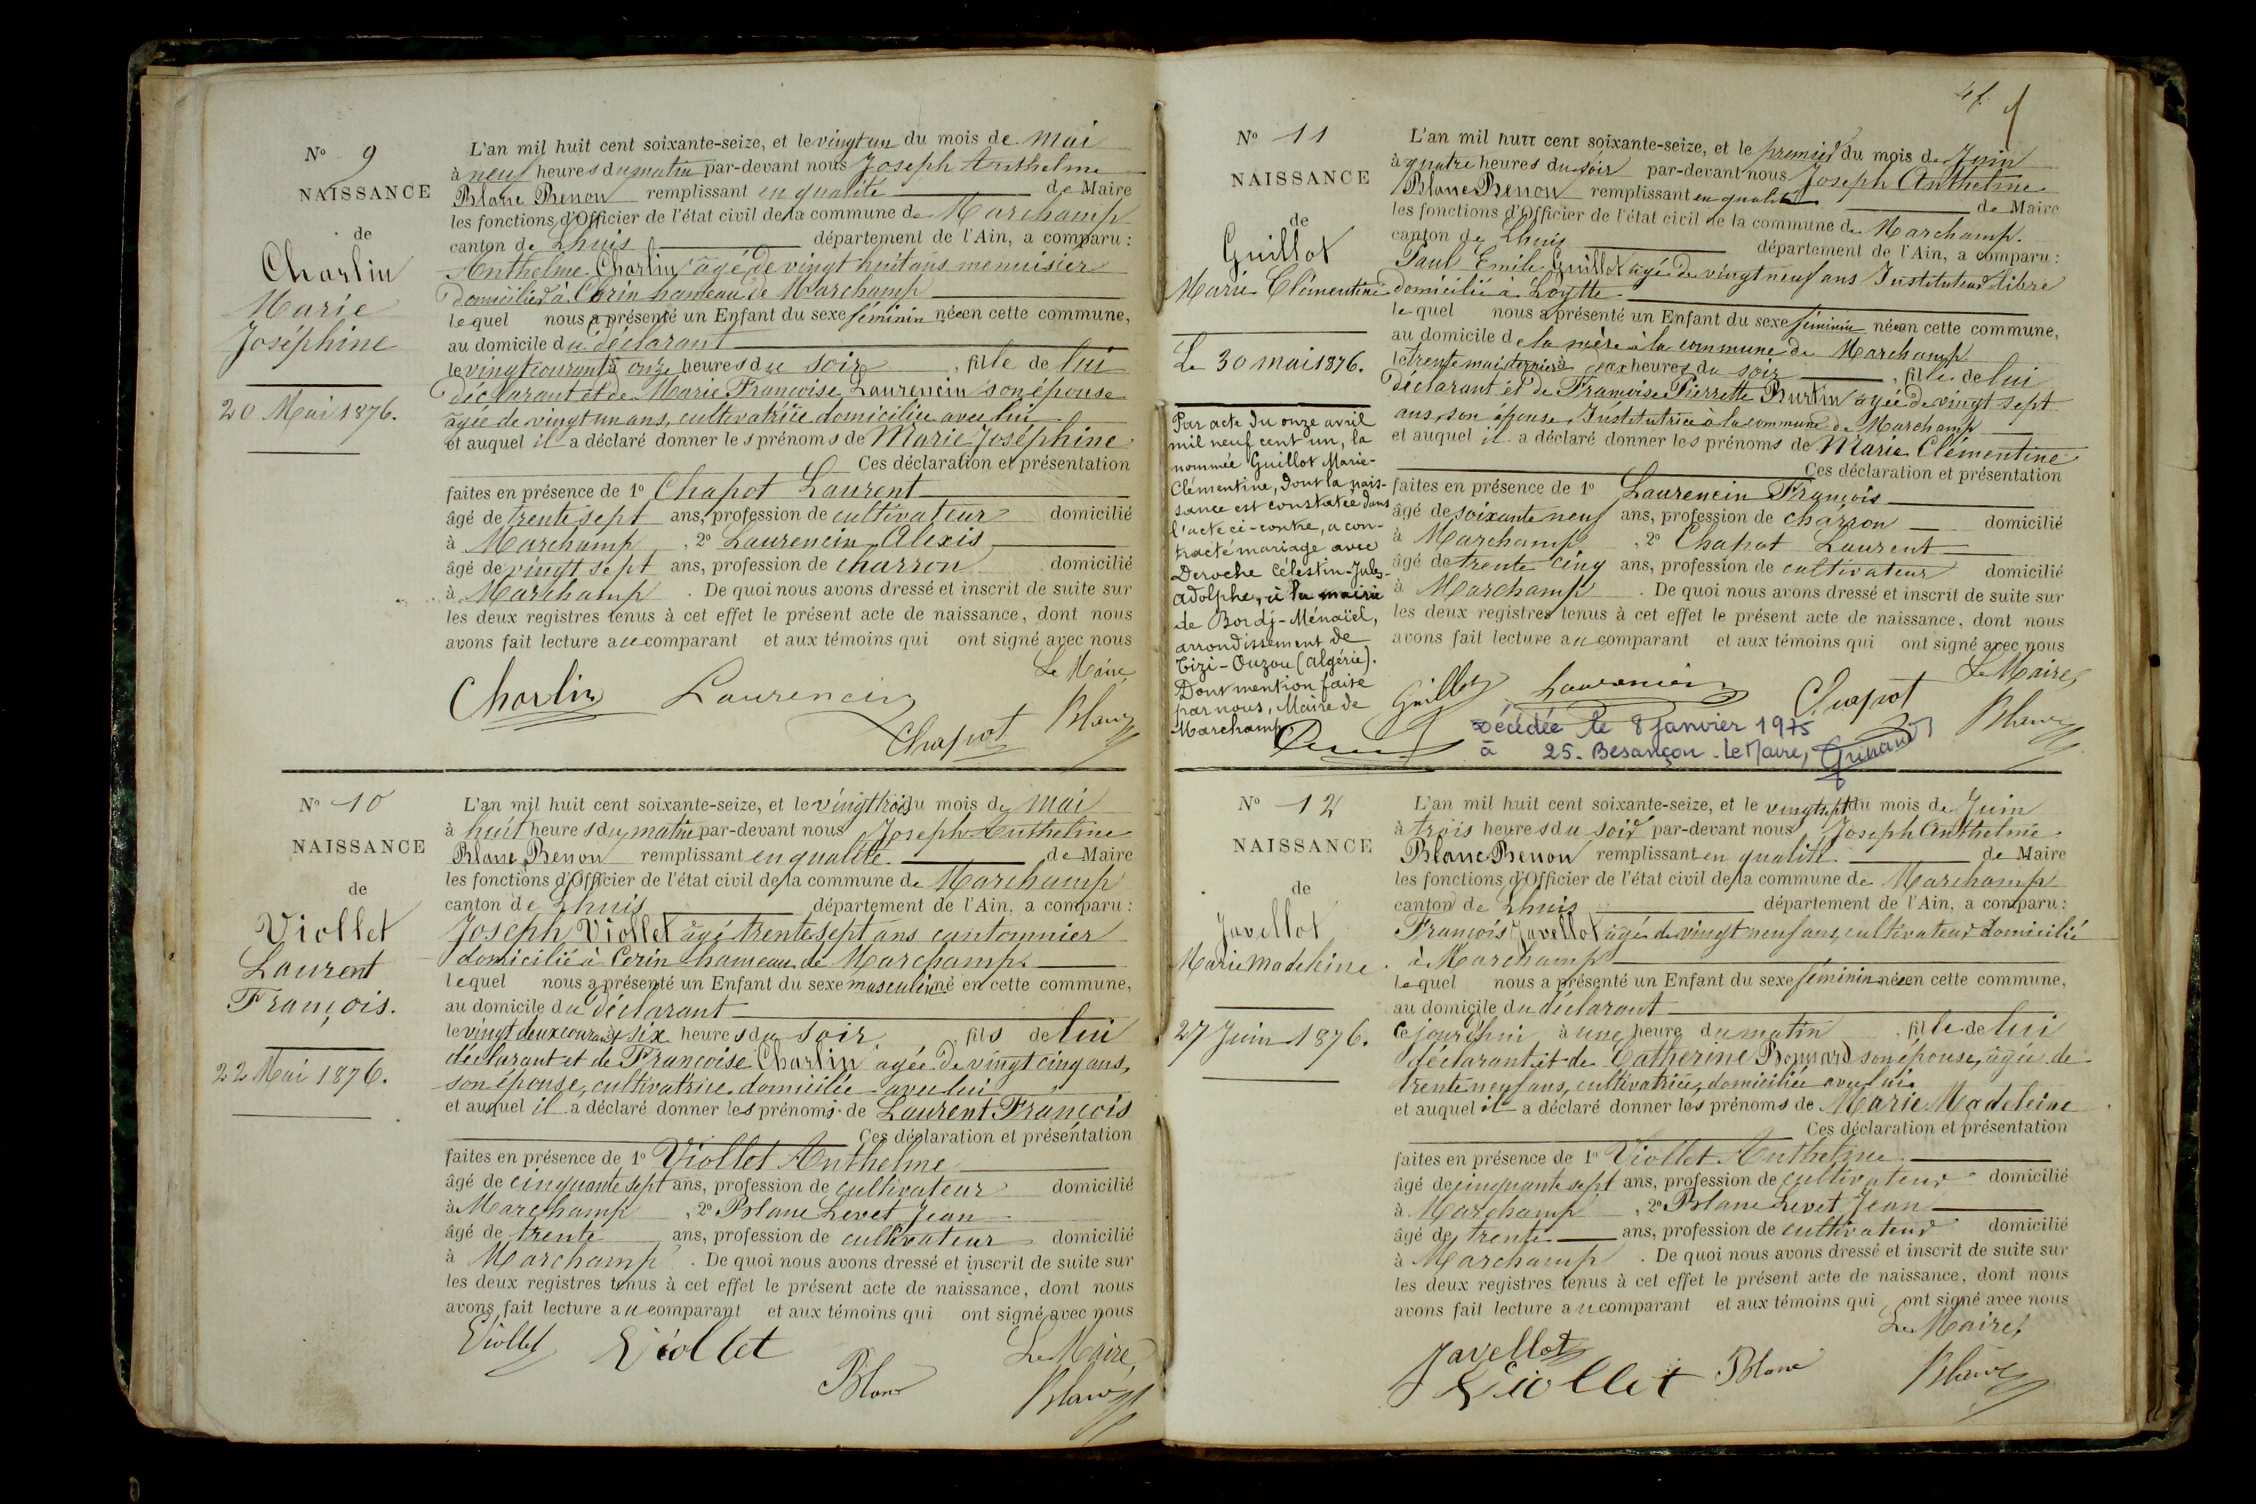 N° 9
NAISSANCE
de
Charlin
Marie
Joséphine
20 Mai 1876.
L'an mil huit cent soixante-seize, et le vingt un du mois de Mai
à neuf heures du matin par-devant nous Joseph Anthelme
Blanc Benon remplissant en qualité de Maire
les fonctions d'Officier de l'état civil de la commune de Marchamp
canton de Lhuis département de l'Ain, a comparu :
Anthelme Charlin âgé de vingt huit ans menuisier
domicilié à Cerin hameau de Marchamp
lequel nous a présenté un Enfant du sexe féminin née en cette commune,
au domicile du déclarant
le vingt courant à onze heures du soir, fille de lui
déclarant et de Marie Françoise Laurencin son épouse
âgée de vingt un ans, cultivatrice domiciliée avec lui
et auquel il a déclaré donner les prénoms de Marie Joséphine
Ces déclaration et présentation
faites en présence de 1° Chapot Laurent
âgé de trente sept ans, profession de cultivateur domicilié
à Marchamp, 2° Laurencin Alexis
âgé de vingt sept ans, profession de charron domicilié
à Marchamp. De quoi nous avons dressé et inscrit de suite sur
les deux registres tenus à cet effet le présent acte de naissance, dont nous
avons fait lecture au comparant et aux témoins qui ont signé avec nous
Le Maire
Charlin Laurencin
Chapot Blanc
N° 10
NAISSANCE
de
Viollet
Laurent
François.
22 Mai 1876.
L'an mil huit cent soixante-seize, et le vingt trois du mois de Mai
à huit heures du matin par-devant nous Joseph Anthelme
Blanc Benon remplissant en qualité de Maire
les fonctions d'Officier de l'état civil de la commune de Marchamp
canton de Lhuis département de l'Ain, a comparu :
Joseph Viollet âgé trente sept ans cantonnier
domicilié à Cerin hameau de Marchamp.
lequel nous a présenté un Enfant du sexe masculin né en cette commune,
au domicile du déclarant
le vingt deux courant à six heures du soir, fils de lui
déclarant et de Françoise Charlin âgée de vingt cinq ans,
son épouse, cultivatrice domiciliée avec lui
et auquel il a déclaré donner les prénoms de Laurent François
Ces déclaration et présentation
faites en présence de 1° Viollet Anthelme
âgé de cinquante sept ans, profession de cultivateur domicilié
à Marchamp, 2° Blanc Levet Jean
âgé de trente ans, profession de cultivateur domicilié
à Marchamp. De quoi nous avons dressé et inscrit de suite sur
les deux registres tenus à cet effet le présent acte de naissance, dont nous
avons fait lecture au comparant et aux témoins qui ont signé avec nous
Viollet Viollet Le Maire,
Blanc Blanc
N° 11
NAISSANCE
de
Guillot
Marie Clémentine
Le 30 mai 1876.
Par acte du onze avril
mil neuf cent un, la
nommée Guillot Marie-
Clémentine, dont la nais-
sance est constatée dans
l'acte ci-contre, a con-
tracté mariage avec
Deroche Célestin-Jules-
Adolphe, à la mairie
de Bordj-Ménaïel,
arrondissement de
Tizi-Ouzou (Algérie).
Dont mention faite
par nous, Maire de
Marchamp
L'an mil huit cent soixante-seize, et le premier du mois de Juin
à quatre heures du soir par-devant nous Joseph Anthelme
Blanc Benon remplissant en qualité de Maire
les fonctions d'Officier de l'état civil de la commune de Marchamp.
canton de Lhuis département de l'Ain, a comparu :
Paul Emile Guillot âgé de vingt neuf ans Instituteur libre
domicilié à Loytte
lequel nous a présenté un Enfant du sexe féminin née en cette commune,
au domicile de la mère à la commune de Marchamp
le trente mai dernier à dix heures du soir, fille de lui
déclarant et de Françoise Pierrette Burtin âgée de vingt sept
ans, son épouse, Institutrice à la commune de Marchamp
et auquel il a déclaré donner les prénoms de Marie Clémentine
Ces déclaration et présentation
faites en présence de 1° Laurencin François
âgé de soixante neuf ans, profession de charron domicilié
à Marchamp, 2° Chapot Laurent
âgé de trente cinq ans, profession de cultivateur domicilié
à Marchamp. De quoi nous avons dressé et inscrit de suite sur
les deux registres tenus à cet effet le présent acte de naissance, dont nous
avons fait lecture au comparant et aux témoins qui ont signé avec nous
Le Maire,
Guillot Laurencin Chapot Blanc
Décédée le 8 Janvier 1975
à 25. Besançon. Le Maire,
N° 12
NAISSANCE
de
Javellot
Marie Madeleine
27 Juin 1876.
L'an mil huit cent soixante-seize, et le vingt sept du mois de Juin
à trois heures du soir par-devant nous Joseph Anthelme
Blanc Benon remplissant en qualité de Maire
les fonctions d'Officier de l'état civil de la commune de Marchamp
canton de Lhuis département de l'Ain, a comparu :
François Javellot âgé de vingt neuf ans, cultivateur domicilié
à Marchamp
lequel nous a présenté un Enfant du sexe féminin née en cette commune,
au domicile du déclarant
ce jourd'hui à une heure du matin, fille de lui
déclarant et de Catherine Bonnard son épouse, âgée de
trente neuf ans, cultivatrice, domiciliée avec lui.
et auquel il a déclaré donner les prénoms de Marie Madeleine
Ces déclaration et présentation
faites en présence de 1° Viollet Anthelme
âgé de cinquante sept ans, profession de cultivateur domicilié
à Marchamp, 2° Blanc Levet Jean
âgé de trente ans, profession de cultivateur domicilié
à Marchamp. De quoi nous avons dressé et inscrit de suite sur
les deux registres tenus à cet effet le présent acte de naissance, dont nous
avons fait lecture au comparant et aux témoins qui ont signé avec nous
Le Maire,
Javellot
Viollet Blanc Blanc